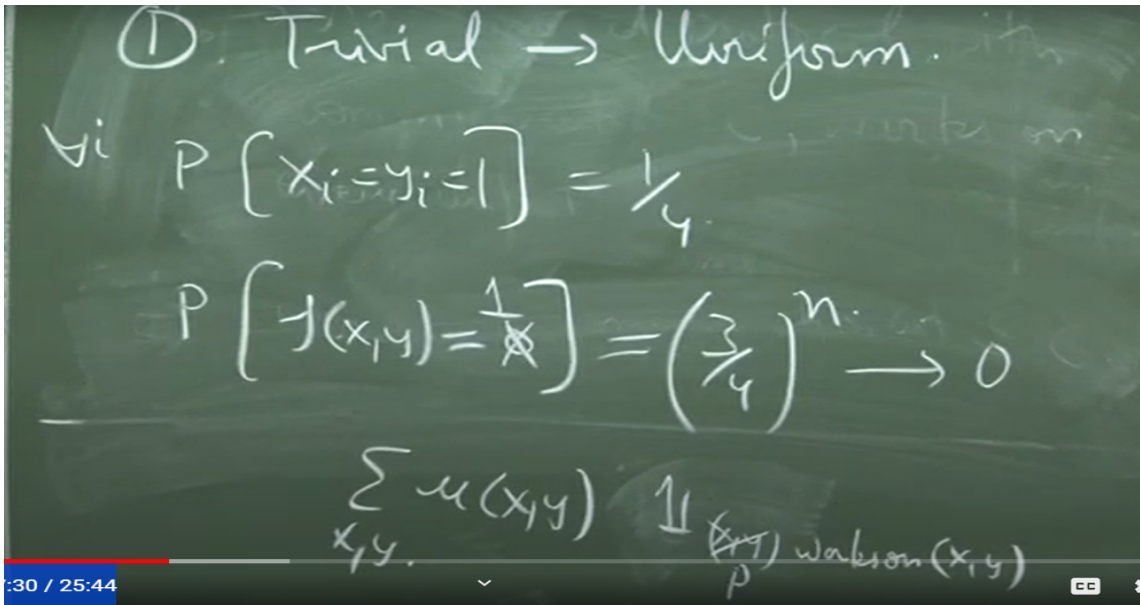 ① Trivial → Uniform.
∀i P[xi=yi=1] = 1/4.
P[f(x,y)=1] = (3/4)^n. → 0
∑ μ(x,y) 𝟙 p works on (x,y)
x,y.
:30 / 25:44
CC